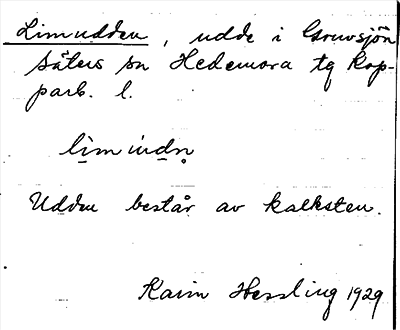 Limudden, udde i Gruvsjön
Säters sn Hedemora tg Kop-
parb. l.
li̲m u̲dn̥
Udden består av kalksten.
Karin Hessling 1929